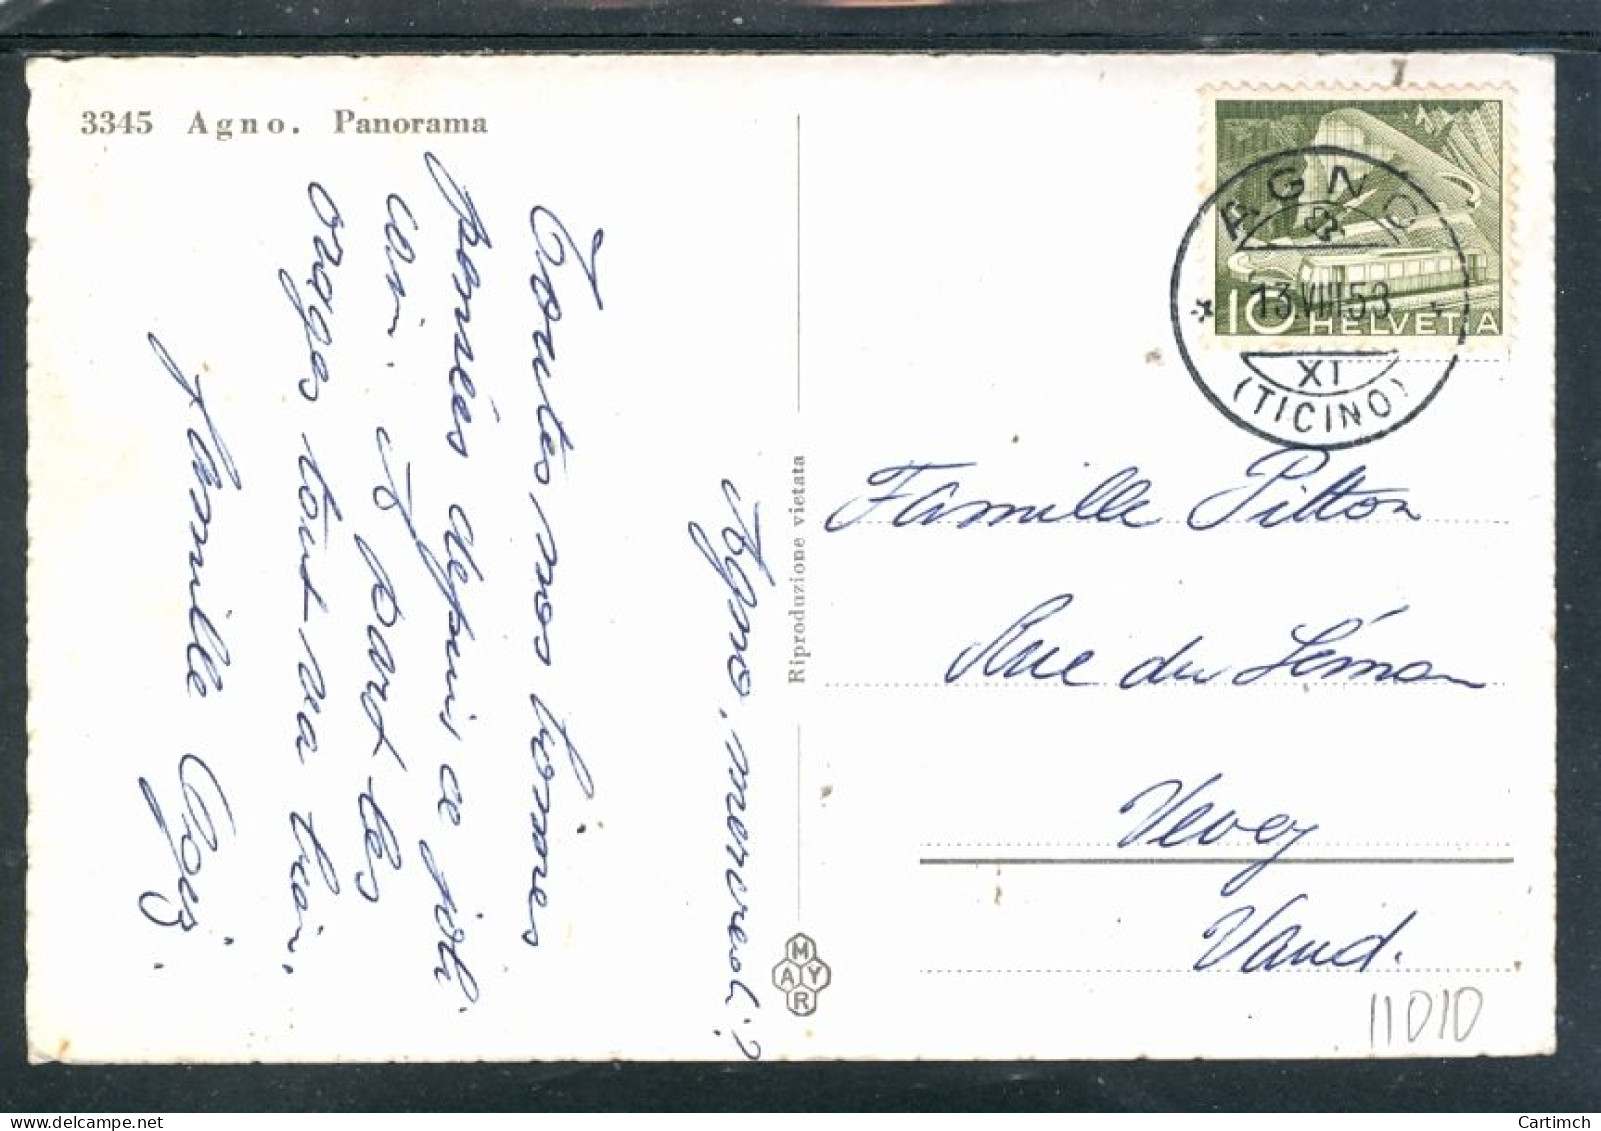 3345 Agno. Panorama
Agno, mercredi?
Toutes nos bonnes
pensées depuis ce joli
coin. A part les
orages tout va bien.
Famille
Riproduzione vietata
MAYR
AGNO
13.VIII.53
XI
(TICINO)
10 HELVETIA
Famille Pitton
Rue du Léman
Vevey
Vaud.
11010
Cartimch